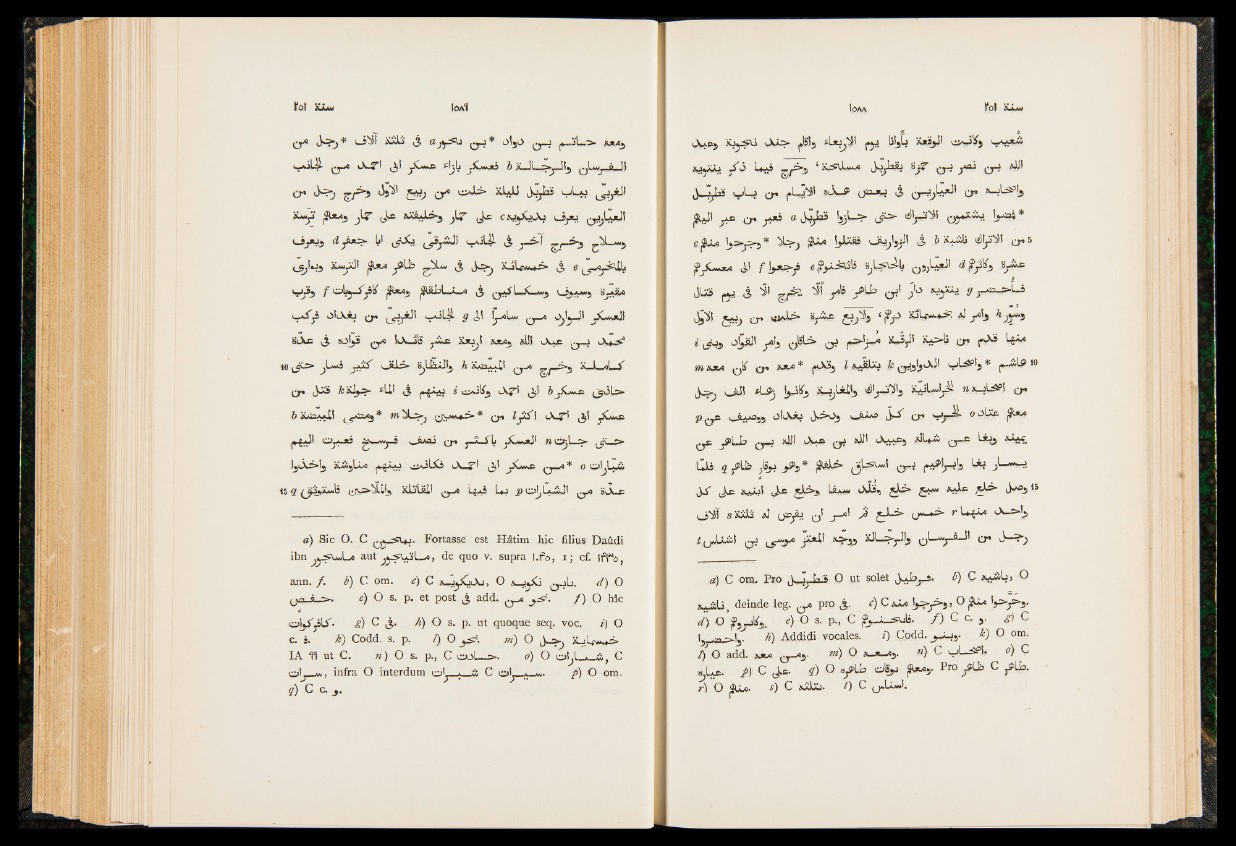 سنة ٢٥١ ١٥٨٨
شعيب وكانت الوقعة بأوانا يوم الاربعاء واقام جند نجوبة وعبد
الله بن نصر بن حمزة بقطربّل مسلحة، وخرج فيما ذكر ينتويه
واصحابه من العيارين فى بعض هذه الايّام من باب قطربّل
*فضوا يشتمون الاتراك حتى جازوا قطربّل a فعبر من عبر اليهم
5 من الاتراك ناشبة b فى الزواريق فقتلوا منهم رجلا *وجرحوا منهم c
عشرة وكاثرهم d العيّارون بالحجارة فأثخنوهم e فرجعوا f الى معسكرهم
فأحضر g ينتويه دار ابن طاهر فامر ألّا يخرج الّا فى يوم قتال
وسوّر h وامر له بخمسمائة درهم، ولأربع عشرة خلت من ربيع الاوّل
منها قدم من ناحية الرقّة مزاحم بن خاقان وامر القوّاد وبنى i
10 هاشم *واصحاب الدواوين k بتلقّيه l وقدم *معه من كان معه m
من اصحابه n الخراسانيّة والاتراك والمغاربة وكانوا زهاء الف رجل
معهم عتاد o الحرب من كل صنف ودخل بغداد ووصيف عن p
يمينه وبغا عن شماله وعبيد الله بن عبد الله بن طاهر عن
يسار بغا وابراهيم بن اسحاق خلفهم *وهو بوقار ظاهر q فلما
15 وصل خلع عليه سبع خلع وقلّد سيفا وخلع على ابنيه على كل
واحد منهما r خمس خلع ثم امر ان يفرض له ثلثة s آلاف
رجل من الفرسان والرجالة ووجّه المعتزّ موسى بن اشناس t
a) C om. Pro قطربّل O ut solet b) C ناشبه, O
deinde leg. من pro فى. c) C وخرجوا منه, O
d) O وكابروهم. e) O s. p., C f) C c. و. g) C
h) Addidi vocales. i) Codd. k) O om.
l) O add. ومن معه. m) O ومعه. n) C اصحاب. o) C
p) C على. q) O ومعهم Pro ظاهر C طاهر.
r) O منهم. s) C ثلثه. t) C اسناس.
سنة ٢٥١ ١٥٨٩
ومعه حاتم بن داود *بن بنحور a فى ثلثة آلاف *رجل من
الفرسان والرجالة b فعسكر بازاء عسكر ابى احمد من الجانب
الغربىّ بباب قطربّل لليلة خلت من ربيع الاوّل وخرج رجل من
العيّارين يعرف بديكويه c على حمار وخليفته على حمار ومعهم ترسة
وسلاح وخرج آخر فى الجانب الشرقىّ يكنى ابا جعفر d ويعرف
بالمخرمى e فى خمسمائة رجل فى سلاح ظاهر معهم الترسة وبوارى
مقيّرة وسيوف وسكاكين فى مناطقهم ومعهم كافركوبات f وقرب
العسكر الوارد من سامرا الى g الجانب الغربىّ من بغداد فركب
محمّد بن عبد الله ومعه اربعة عشر قائدا من قوّاده فى عدّة
10 كاملة وخرج من المبيّضة h والنظّارة خلق كثير فسار حتى
حاذى عسكر b ابى احمد وكانت i بينهم فى الماء جولة k قتل من
عسكر ابى احمد اكثر l من *خمسين رجلا m *ومضى المبيّضة b
حتى جازت n العسكر بأكثر من نصف فرسخ فعبرت اليهم
شبّارات o *من عسكر ابى احمد فكانت بينهم مناوشة واخذوا
15 عدّة من الشبّارات p بما فيها من المقاتلة والملّاحين فاستوثق q
a) Sic O. C Fortasse est Hâtim hic filius Daûdi
ibn aut, de quo v. supra ١٠٣٥, 1; cf. ١٢٣٥,
ann. f. b) C om. c) C, O d) O
e) O s. p. et post فى add. نحو من. f) O hic
كافركوات. g) C فى. h) O s. p. ut quoque seq. voc. i) O
c. ف. k) Codd. s. p. l) O نحو. m) O خمسمائة رجل
IA ٩٦ ut C. n) O s. p., C o) O شبارات, C
infra O interdum شبرات C p) O om.
q) C c. و.